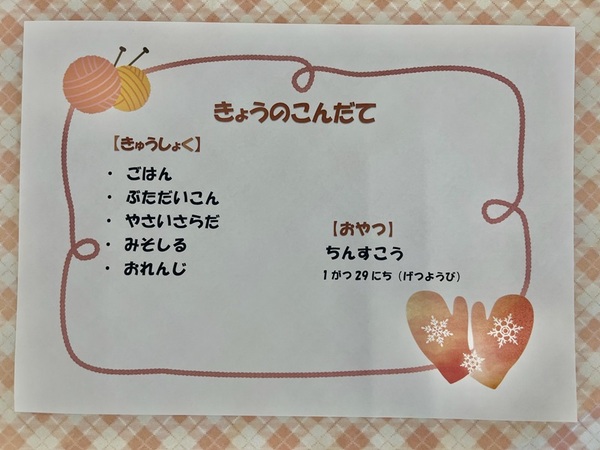 きょうのこんだて
【きゅうしょく】
・ ごはん
・ ぶただいこん
・ やさいさらだ
・ みそしる
・ おれんじ
【おやつ】
ちんすこう
1がつ29にち（げつようび）